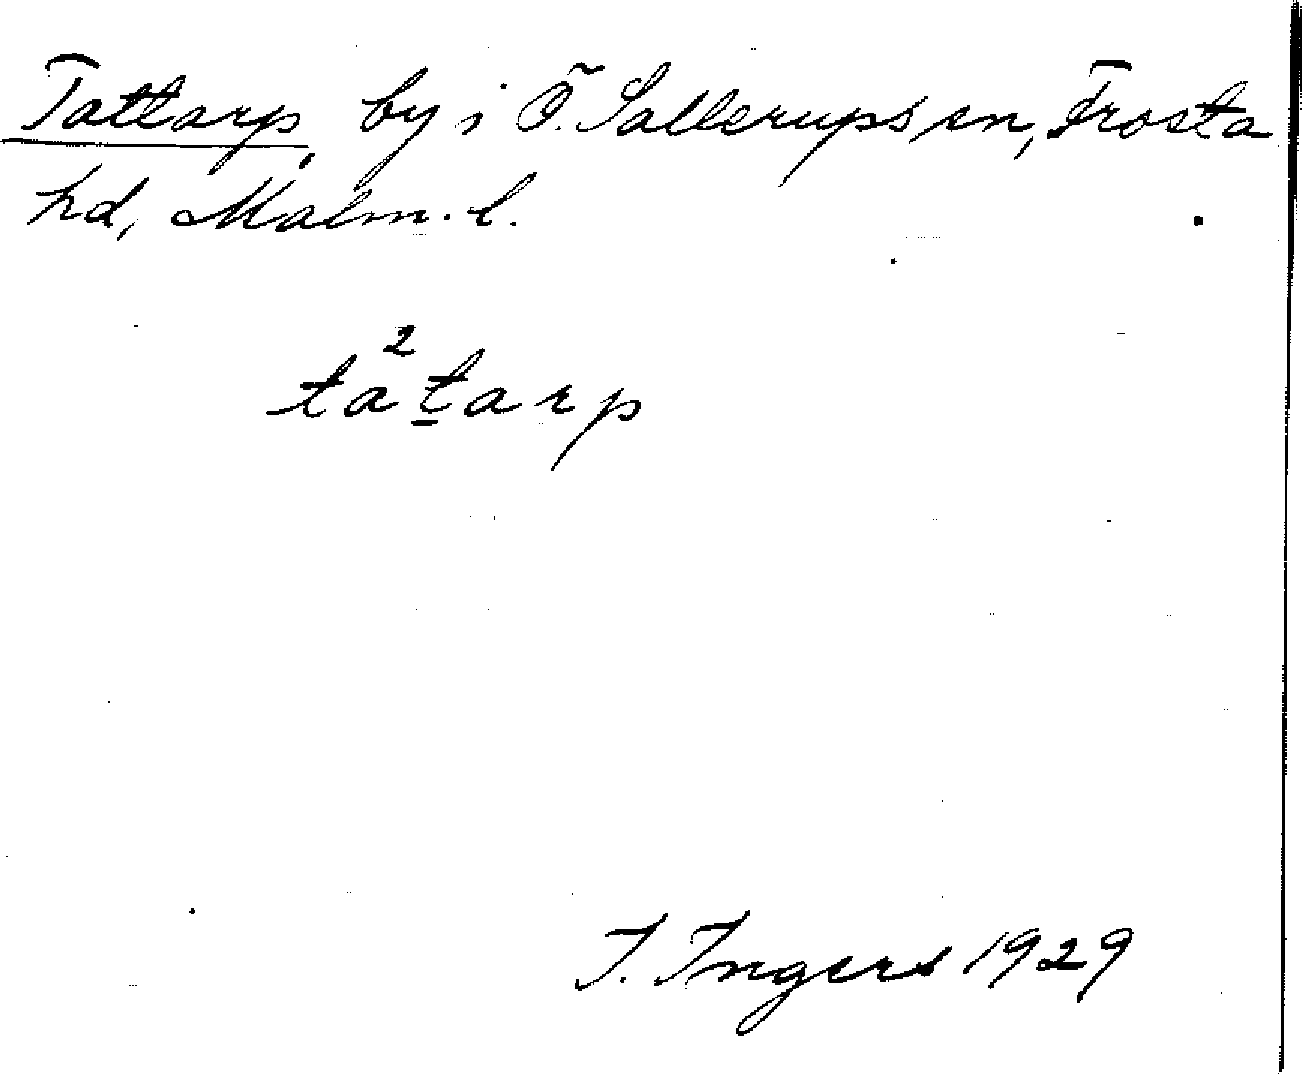 Tattarp, by i Ö. Sallerups sn, Frosta
hd, Malm. l.
ta²t̲arp
I. Ingers 1929